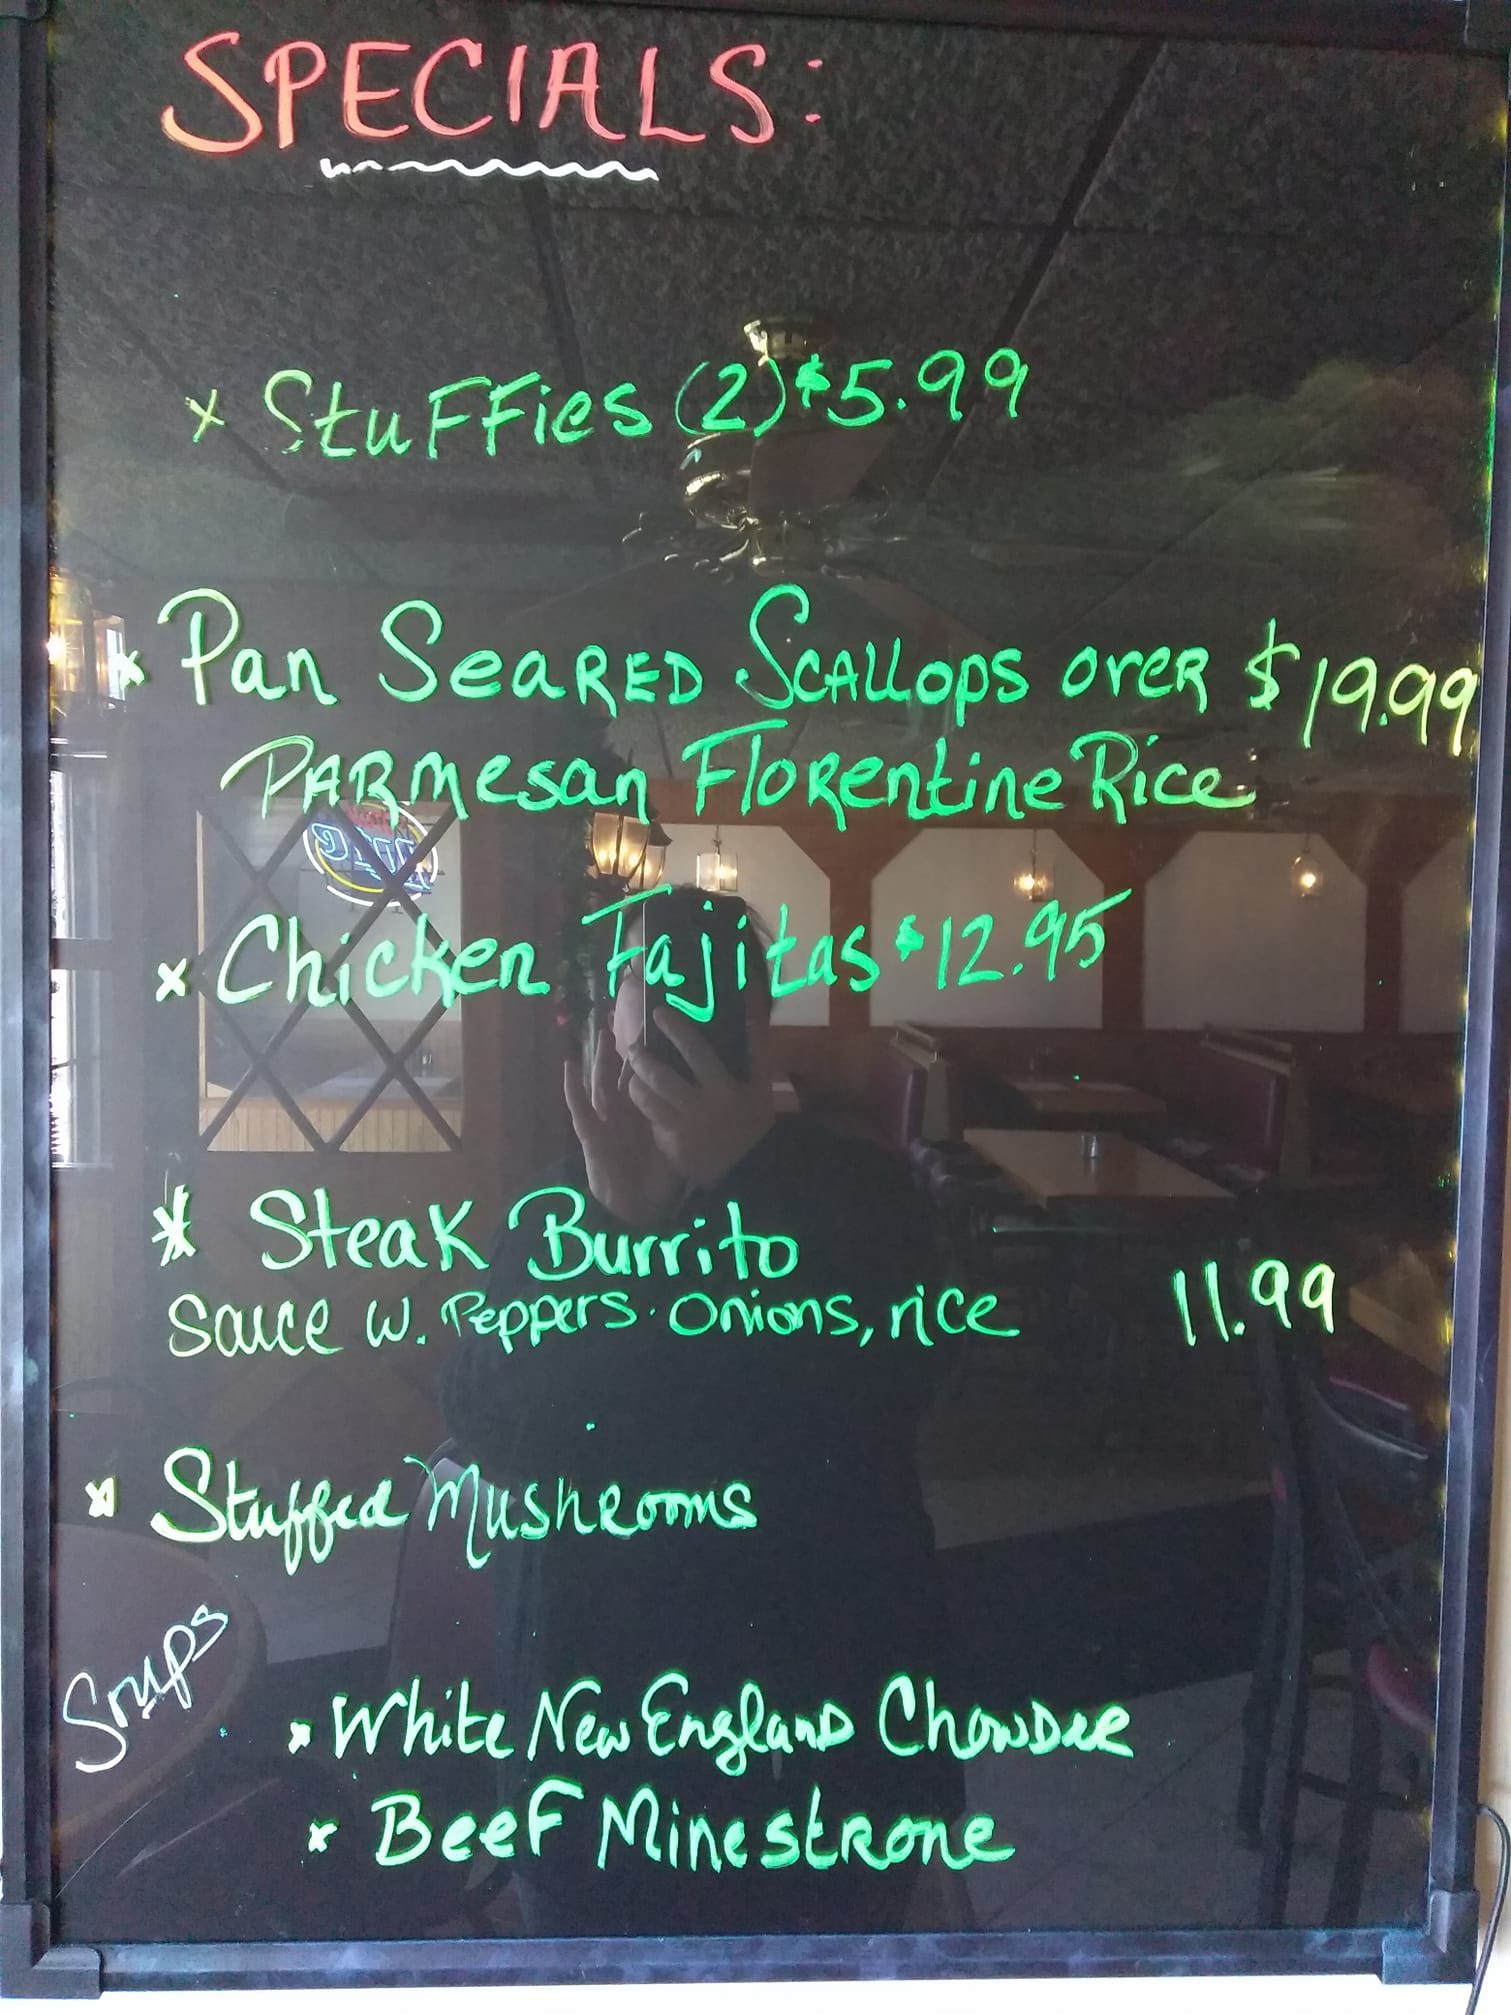 SPECIALS:
x Stuffies (2) $5.99
x Pan Seared Scallops over $19.99
Parmesan Florentine Rice
x Chicken Fajitas $12.95
* Steak Burrito
Sauce w. Peppers. Onions, rice 11.99
x Stuffed Mushrooms
Soups
x White New England Chowder
x Beef Minestrone